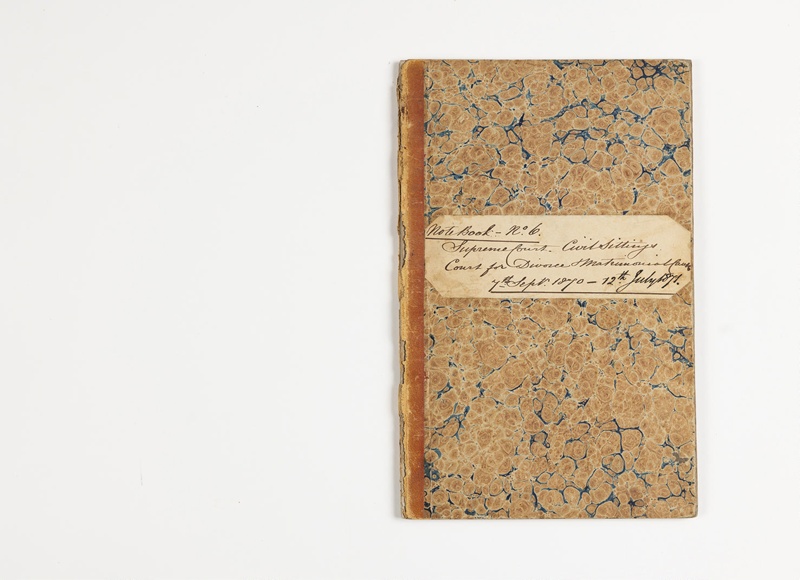 Note Book - No. 6.
Supreme Court - Civil Sittings
Court for Divorce & Matrimonial
7th Sept. 1870 - 12th July 1871.